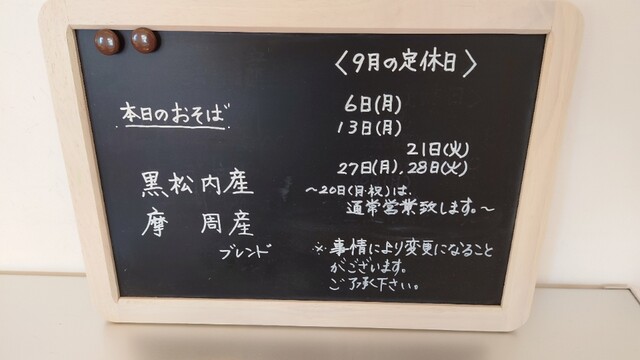 本日のおそば
黒松内産
摩 周産
ブレンド
〈9月の定休日〉
6日(月)
13日(月)
21日(火)
27日(月),28日(火)
〜20日(月・祝)は、
通常営業致します。〜
※事情により変更になること
がございます。
ご了承下さい。